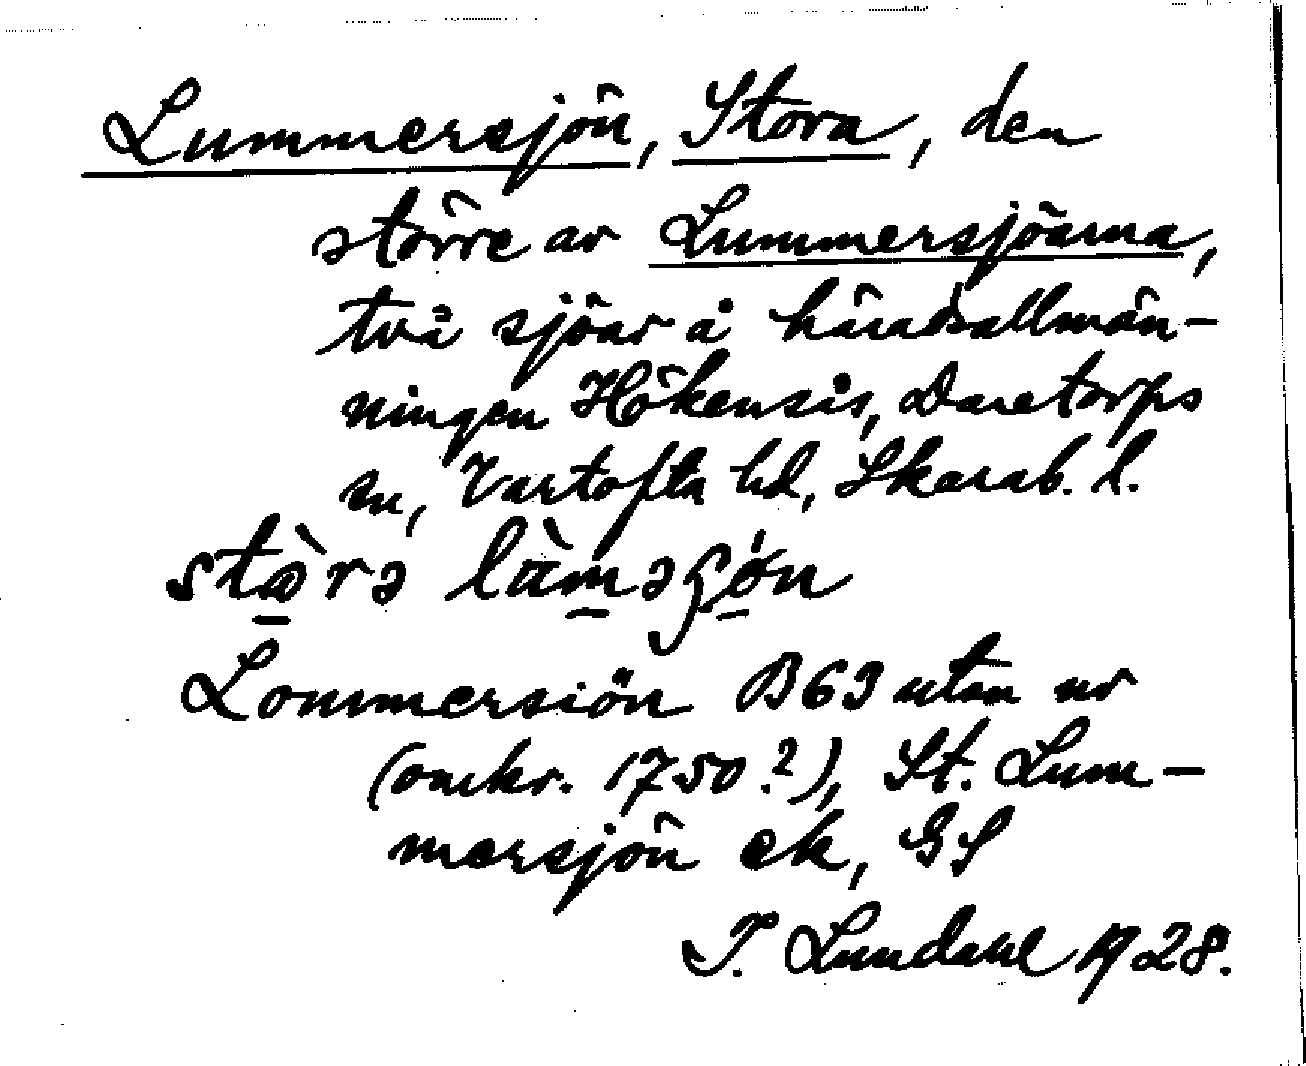 Lummersjön, Stora, den
större av Lummersjöarna,
två sjöar å häradsallmän-
ningen Hökensås, Daretorps
sn, Vartofta hd, Skarab. l.
Lommersiön B69 utan nr
(omkr. 1750?), St. Lum-
mersjön ek, GS
I. Lundahl 1928.